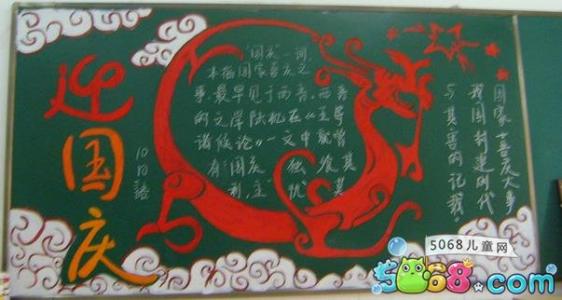 迎国庆
“国庆”一词，
本指国家喜庆之
事、最早见于西晋。西晋
的文学陆机在《五等
诸侯论》一文中就曾
有“国庆独飨其
利，主忧莫
与其害的记载。
我国封建时代
国家喜庆大事
5068儿童网
5068.com